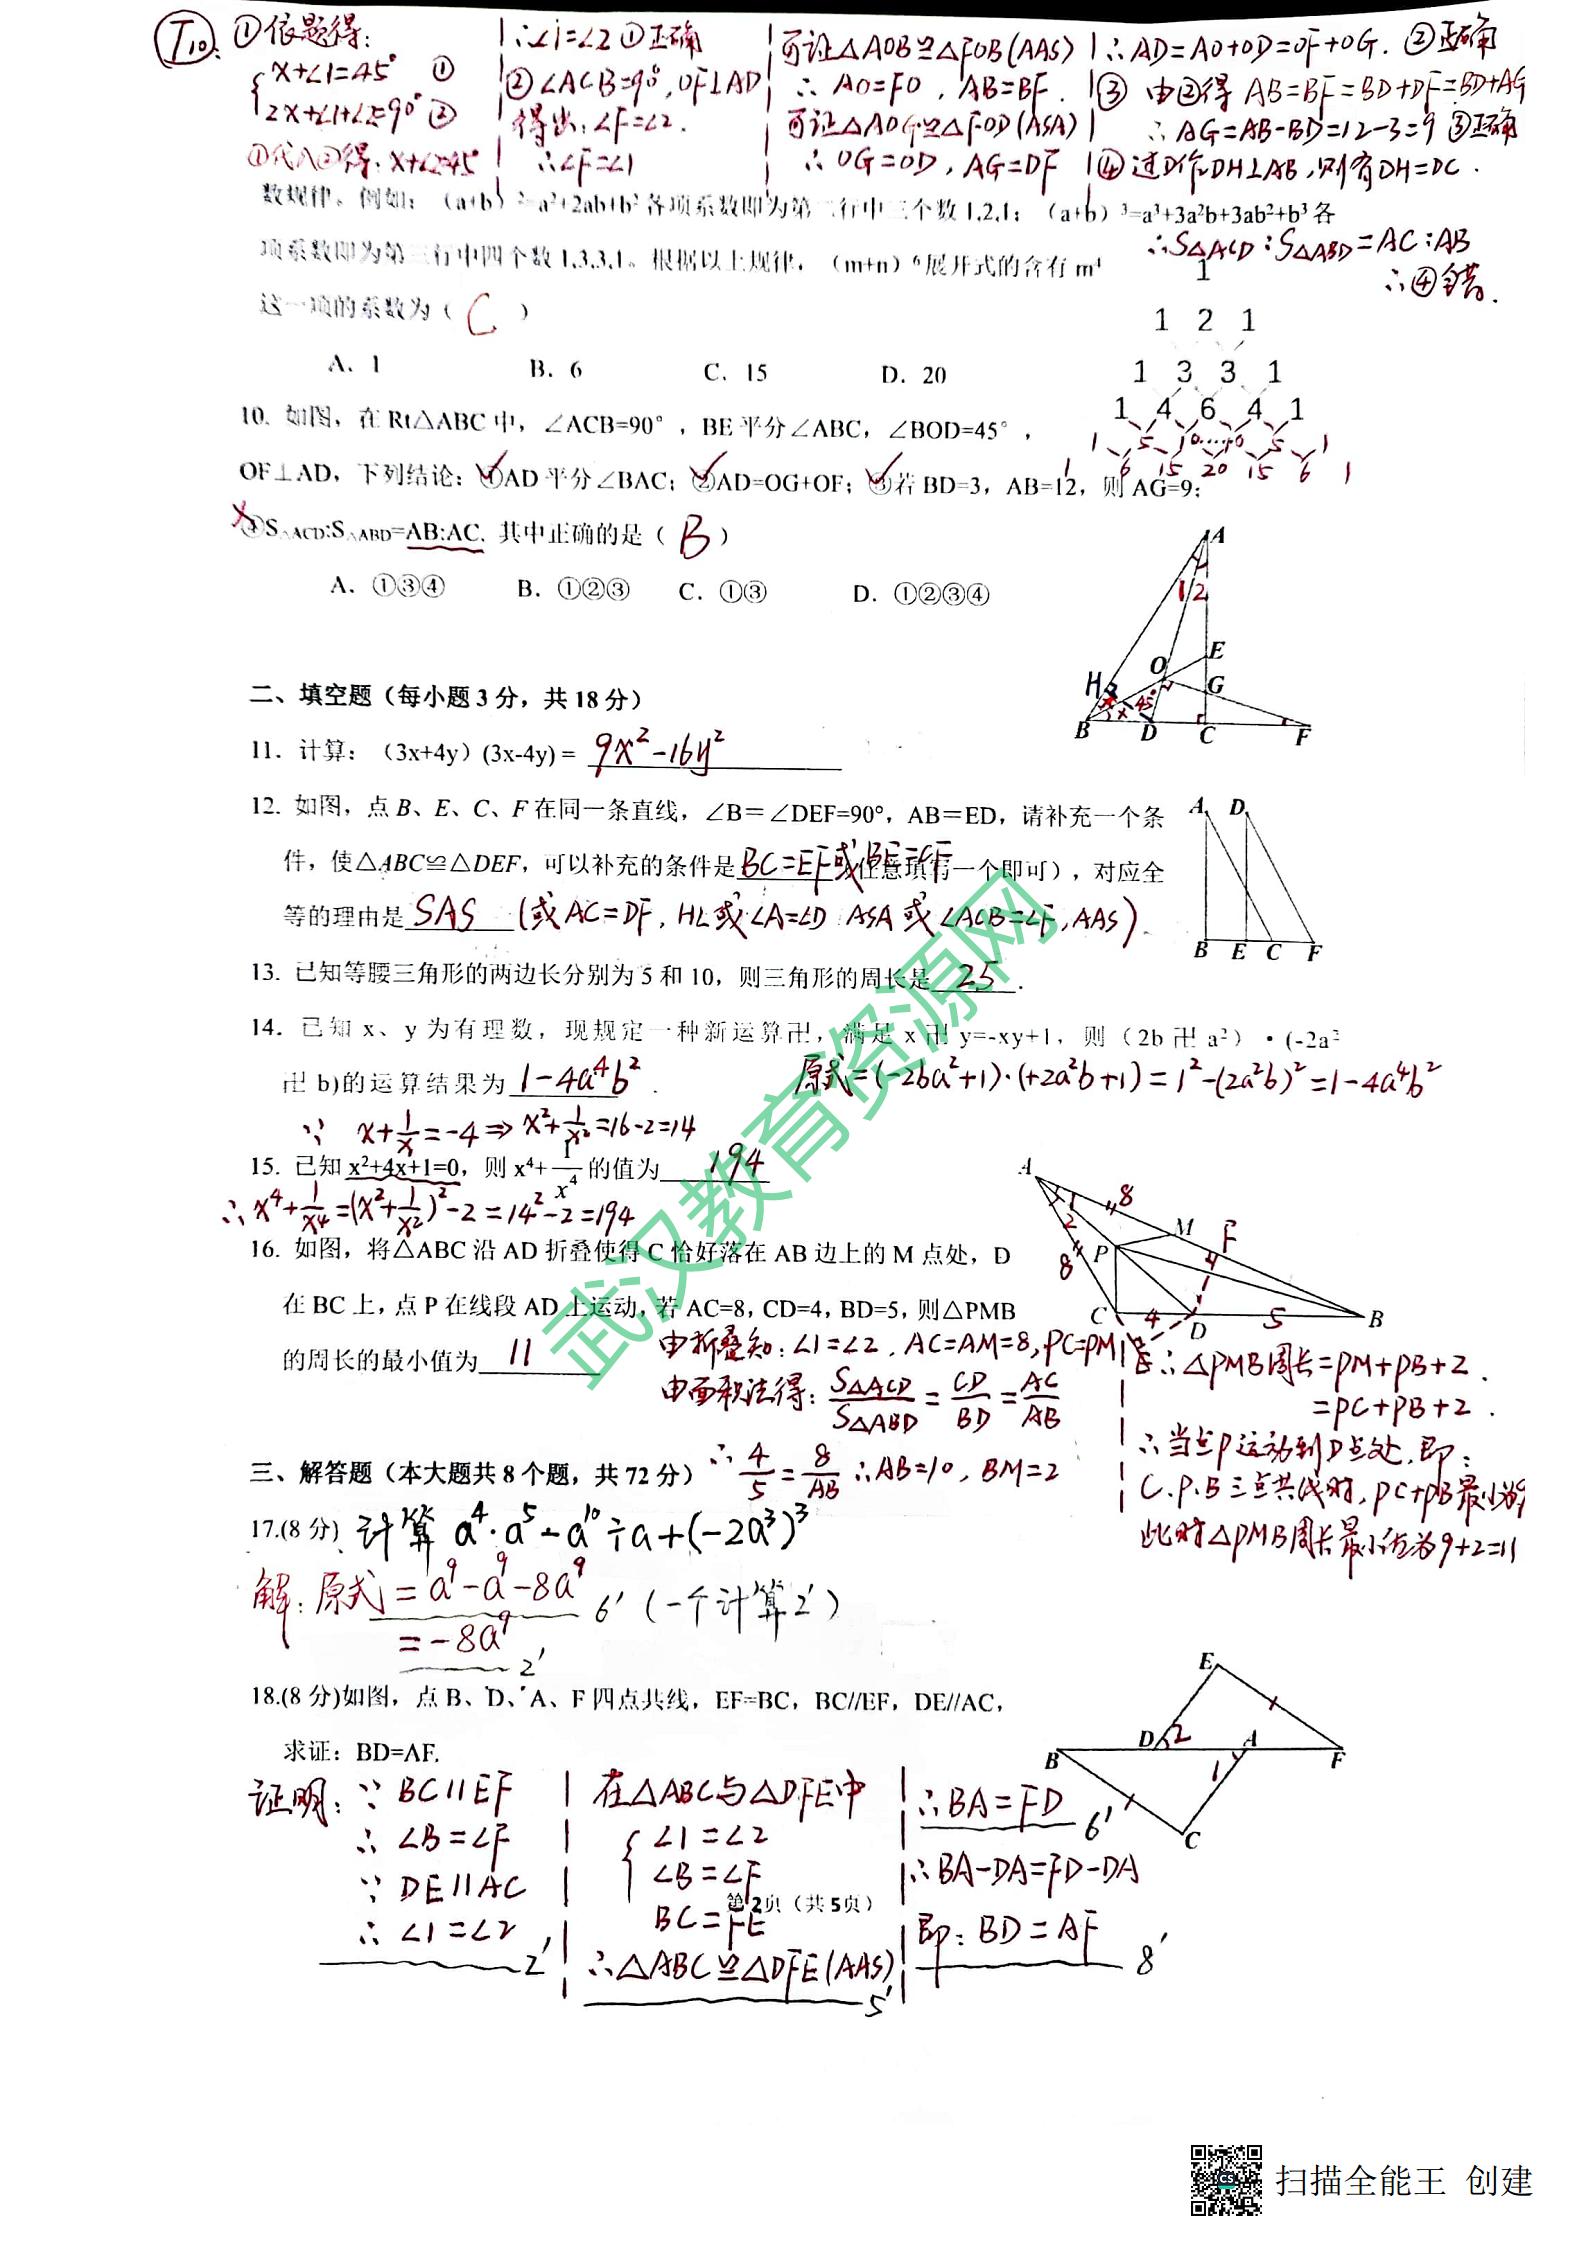 T10: ①依题得:
{x+∠1=45° ①
2x+∠1+∠2=90° ②
①代入②得: x+∠2=45°
∴∠1=∠2 ①正确
②∠ACB=90°, OF⊥AD
得出: ∠F=∠2.
∴∠F=∠1
可证△AOB≌△FOB(AAS)
∴ AO=FO , AB=BF.
可证△AOG≌△FOD(ASA)
∴OG=OD, AG=DF
∴AD=AO+OD=OF+OG. ②正确
③ 由②得 AB=BF=BD+DF=BD+AG
∴AG=AB-BD=12-3=9 ③正确
④过D作DH⊥AB,则有DH=DC.
∴S△ACD:S△ABD=AC:AB
∴④错.
数规律。例如:(a+b)²=a²+2ab+b²各项系数即为第二行中三个数1,2,1;(a+b)³=a³+3a²b+3ab²+b³各
项系数即为第三行中四个数1,3,3,1。根据以上规律,(m+n)⁶展开式的含有m⁴
这一项的系数为( C )
A. 1 B. 6 C. 15 D. 20
1
1 2 1
1 3 3 1
1 4 6 4 1
1 5 10 10 5 1
1 6 15 20 15 6 1
10. 如图,在Rt△ABC中,∠ACB=90°,BE平分∠ABC,∠BOD=45°,
OF⊥AD,下列结论:①AD平分∠BAC;②AD=OG+OF;③若BD=3,AB=12,则AG=9;
④S△ACD:S△ABD=AB:AC. 其中正确的是( B )
A. ①③④ B. ①②③ C. ①③ D. ①②③④
A
1 2
E
O
H
G
x x 45°
B D C F
二、填空题(每小题3分,共18分)
11. 计算:(3x+4y)(3x-4y) = 9x²-16y²
12. 如图,点B、E、C、F在同一条直线,∠B=∠DEF=90°,AB=ED,请补充一个条
件,使△ABC≌△DEF,可以补充的条件是 BC=EF或BE=CF (任意填写一个即可),对应全
等的理由是 SAS (或AC=DF, HL或∠A=∠D ASA或∠ACB=∠F, AAS)
A D
B E C F
13. 已知等腰三角形的两边长分别为5和10,则三角形的周长是 25 .
14. 已知x、y为有理数,现规定一种新运算卍,满足x卍y=-xy+1,则(2b卍a²)·(-2a²
卍b)的运算结果为 1-4a⁴b² .
原式=(-2ba²+1)·(+2a²b+1)=1²-(2a²b)²=1-4a⁴b²
∵ x+1/x=-4⇒x²+1/x²=16-2=14
15. 已知x²+4x+1=0,则x⁴+1/x⁴的值为 194
∴x⁴+1/x⁴=(x²+1/x²)²-2=14²-2=194
16. 如图,将△ABC沿AD折叠使得C恰好落在AB边上的M点处,D
在BC上,点P在线段AD上运动,若AC=8,CD=4,BD=5,则△PMB
的周长的最小值为 11
A
1 8
2
M F
8 P
C 4 D 5 B
E
由折叠知:∠1=∠2, AC=AM=8, PC=PM
由面积法得: S△ACD/S△ABD=CD/BD=AC/AB
∴4/5=8/AB ∴AB=10, BM=2
∴△PMB周长=PM+PB+2.
=PC+PB+2.
∴当点P运动到D点处,即:
C.P.B三点共线时,PC+PB最小为9
此时△PMB周长最小值为9+2=11
三、解答题(本大题共8个题,共72分)
17.(8分) 计算 a⁴·a⁵-a¹⁰÷a+(-2a³)³
解:原式=a⁹-a⁹-8a⁹ 6′(一个计算2′)
=-8a⁹ 2′
18.(8分)如图,点B、D、A、F四点共线,EF=BC,BC//EF,DE//AC,
求证:BD=AF.
E
D 2 A
B F
1
C
证明:∵BC//EF
∴∠B=∠F
∵DE//AC
∴∠1=∠2 2′
在△ABC与△DFE中
{∠1=∠2
∠B=∠F
BC=FE
∴△ABC≌△DFE(AAS) 5′
∴BA=FD 6′
∴BA-DA=FD-DA
即:BD=AF 8′
第2页(共5页)
武汉教育资源网
扫描全能王 创建